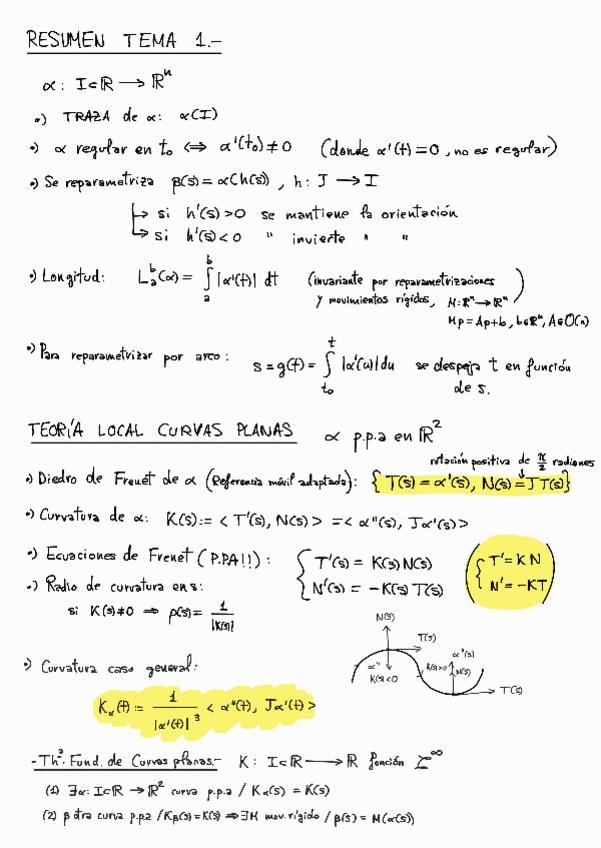 RESUMEN TEMA 1.-
α: I⊂ℝ → ℝⁿ
•) TRAZA de α: α(I)
•) α regular en t₀ ⟺ α'(t₀)≠0 (donde α'(t)=0, no es regular)
•) Se reparametriza β(s)=α(h(s)), h: J → I
↳ si h'(s)>0 se mantiene la orientación
↳ si h'(s)<0 " invierte " "
•) Longitud: Lₐᵇ(α)= ∫ₐᵇ |α'(t)| dt (invariante por reparametrizaciones
y movimientos rígidos, M: ℝⁿ→ℝⁿ)
Mp=Ap+b, b∈ℝⁿ, A∈O(n)
•) Para reparametrizar por arco: s=g(t)= ∫_{t₀}^{t} |α'(u)|du se despeja t en función
de s.
TEORÍA LOCAL CURVAS PLANAS α p.p.a en ℝ²
rotación positiva de π/2 radianes
•) Diedro de Frenet de α (Referencia móvil adaptada): {T(s)=α'(s), N(s)=JT(s)}
•) Curvatura de α: K(s):= <T'(s), N(s)> = <α''(s), Jα'(s)>
•) Ecuaciones de Frenet (P.PA!!): { T'(s)=K(s)N(s) ( { T'=KN
N'(s)=-K(s)T(s) N'=-KT )
•) Radio de curvatura en s:
si K(s)≠0 ⇒ ρ(s)= 1/|K(s)|
N(s)
T(s)
α''
K(s)<0
K(s)>0
α''(s)
N(s)
T(s)
•) Curvatura caso general:
Kα(t):= 1/|α'(t)|³ <α''(t), Jα'(t)>
-Thº. Fund. de Curvas planas.- K: I⊂ℝ → ℝ función C^∞
(1) ∃α: I⊂ℝ → ℝ² curva p.p.a / Kα(s)=K(s)
(2) β otra curva p.p.a / Kβ(s)=K(s) ⇒ ∃M mov. rígido / β(s)=M(α(s))